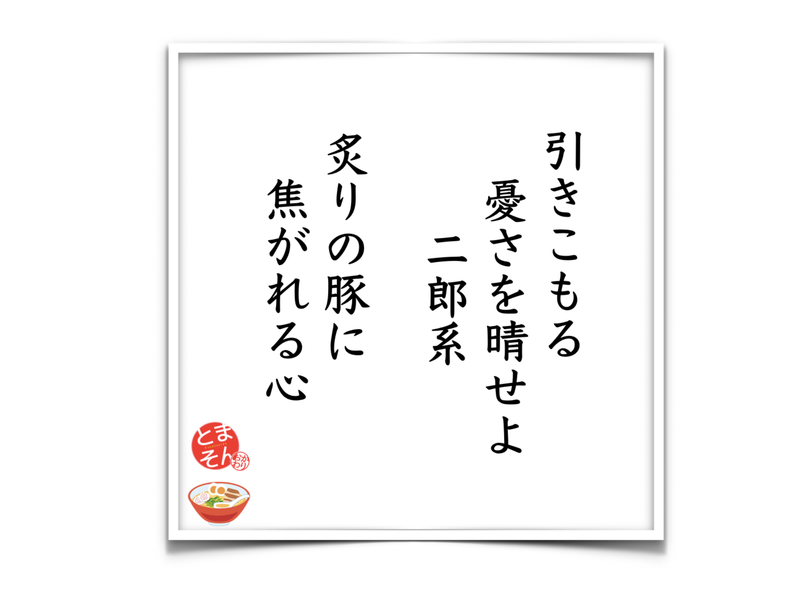 引きこもる
憂さを晴せよ
二郎系
炙りの豚に
焦がれる心
とま
そん
おか
わり